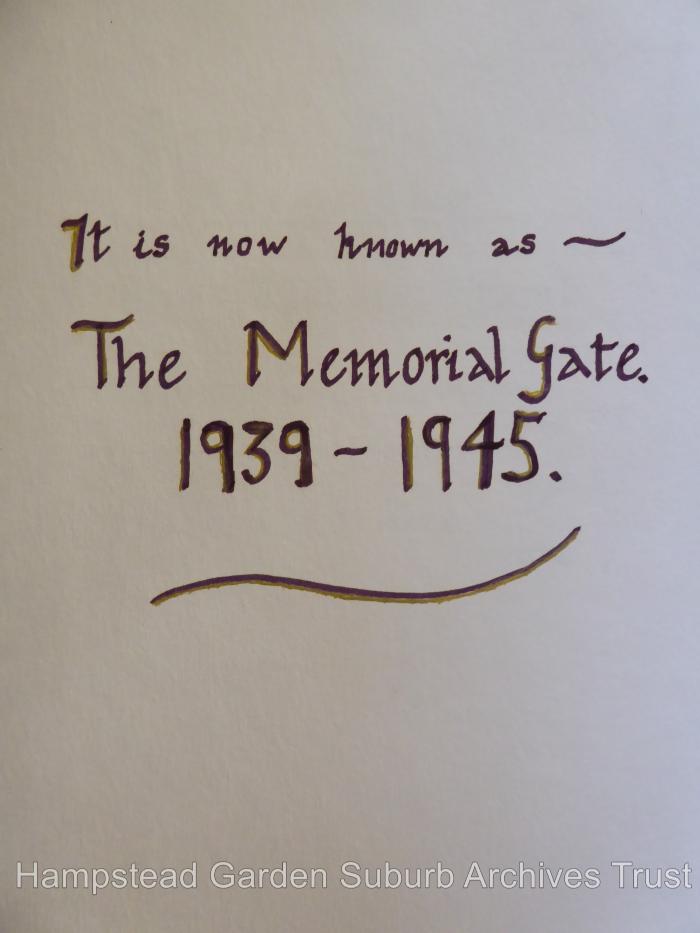 It is now known as ~
The Memorial Gate.
1939 ~ 1945.
Hampstead Garden Suburb Archives Trust